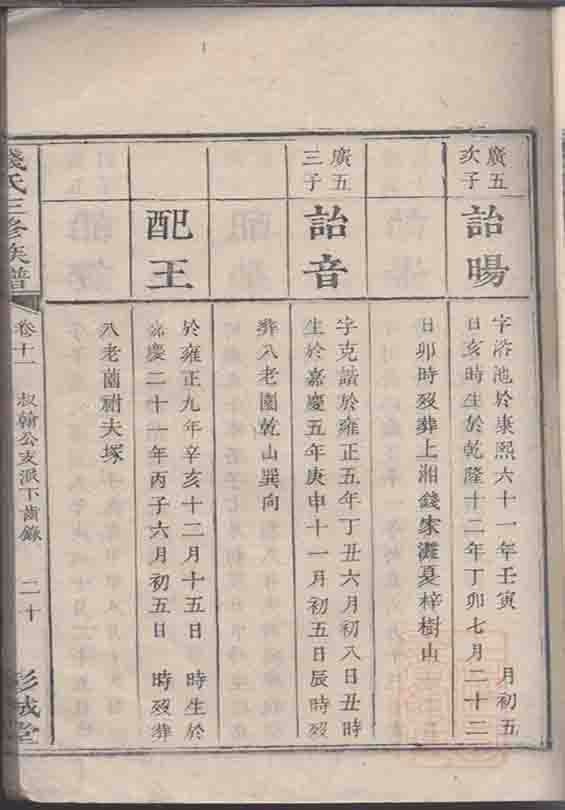 廣五
次子
詒暘
字浴池於康熙六十一年壬寅 月初五
日亥時生於乾隆十二年丁卯七月二十二
日卯時歿葬上湘錢家灘夏梓樹山
廣五
三子
詒音
字克諧於雍正五年丁丑六月初八日丑時
生於嘉慶五年庚申十一月初五日辰時歿
葬八老園乾山巽向
配王
於雍正九年辛亥十二月十五日 時生於
嘉慶二十一年丙子六月初五日 時歿葬
八老園祔夫塚
錢氏三修族譜
卷十一 叔翰公支派下齒錄 二十
彭城堂